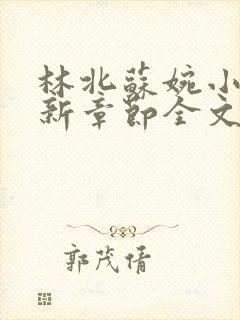 林北蘇婉小
新章節全文
郭茂倩